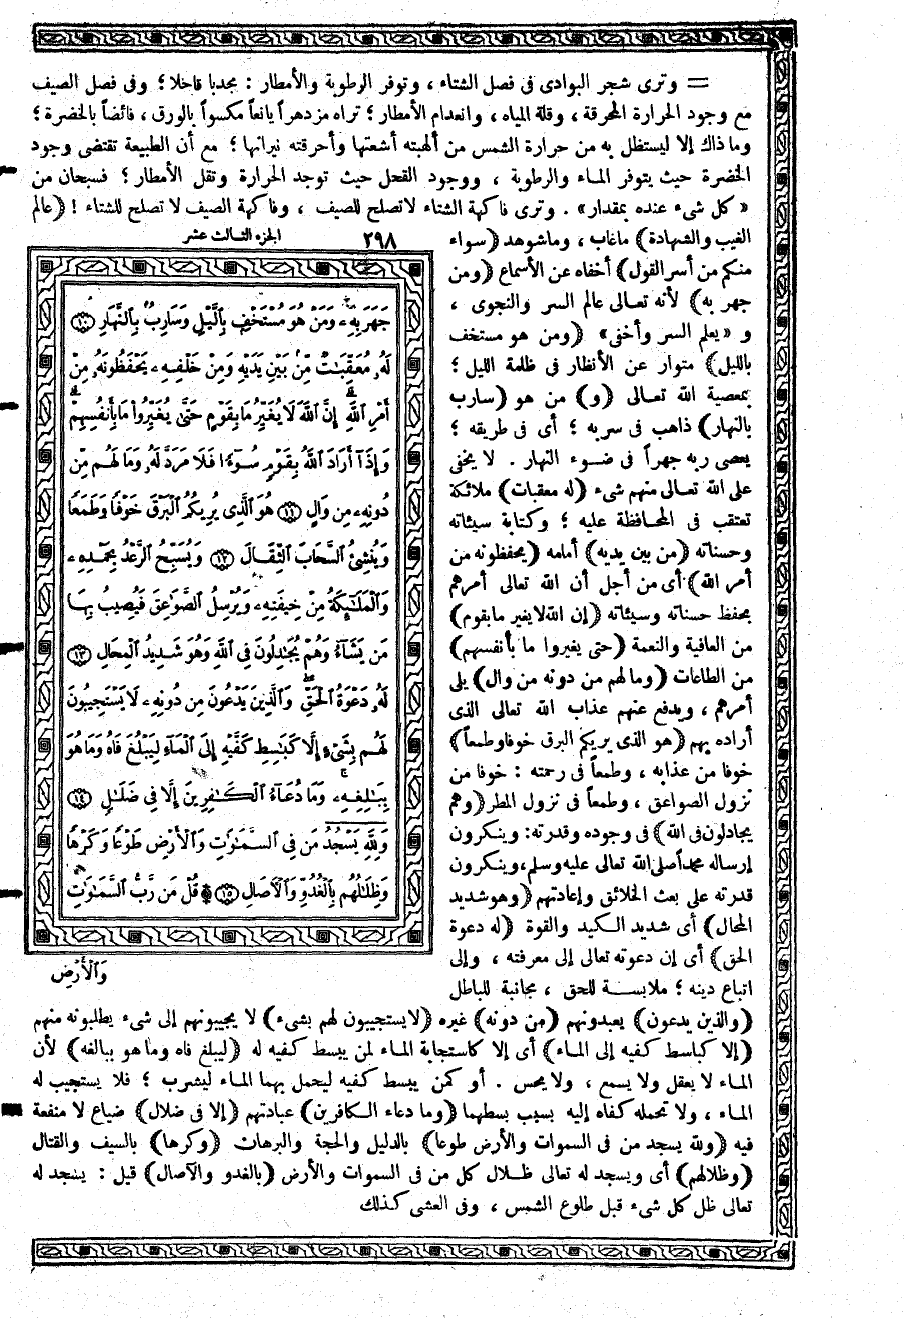 = وترى شجر البوادى فى فصل الشتاء ، وتوفر الرطوبة والأمطار : مجدبا قاحلا ؛ وفى فصل الصيف
مع وجود الحرارة المحرقة ، وقلة المياه ، وانعدام الأمطار ؛ تراه مزدهراً يانعاً مكسواً بالورق ، فائضاً بالخضرة ؛
وما ذاك إلا ليستظل به من حرارة الشمس من ألهبته أشعتها وأحرقته نيرانها ؛ مع أن الطبيعة تقتضى وجود
الخضرة حيث يتوفر الماء والرطوبة ، ووجود القحل حيث توجد الحرارة وتقل الأمطار ؛ فسبحان من
« كل شىء عنده بمقدار » . وترى فاكهة الشتاء لاتصلح للصيف ، وفاكهة الصيف لا تصلح للشتاء ! (عالم
الغيب والشهادة) ماغاب ، وماشوهد (سواء
منكم من أسر القول) أخفاه عن الأسماع (ومن
جهر به) لأنه تعالى عالم السر والنجوى ،
و « يعلم السر وأخفى » (ومن هو مستخف
بالليل) متوار عن الأنظار فى ظلمة الليل ؛
بمعصية الله تعالى (و) من هو (سارب
بالنهار) ذاهب فى سربه ؛ أى فى طريقه ؛
يعصى ربه جهراً فى ضوء النهار . لا يخفى
على الله تعالى منهم شىء (له معقبات) ملائكة
تعتقب فى المحافظة عليه ؛ وكتابة سيئاته
وحسناته (من بين يديه) أمامه (يحفظونه من
أمر الله) أى من أجل أن الله تعالى أمرهم
بحفظ حسناته وسيئاته (إن الله لا يغير ما بقوم)
من العافية والنعمة (حتى يغيروا ما بأنفسهم)
من الطاعات (وما لهم من دونه من وال) يلى
أمرهم ، ويدفع عنهم عذاب الله تعالى الذى
أراده بهم (هو الذى يريكم البرق خوفا وطمعا)
خوفا من عذابه ، وطمعاً فى رحمته : خوفا من
نزول الصواعق ، وطمعاً فى نزول المطر (وهم
يجادلون فى الله) فى وجوده وقدرته : وينكرون
إرساله محمداً صلى الله تعالى عليه وسلم ، وينكرون
قدرته على بعث الخلائق وإعادتهم (وهو شديد
المحال) أى شديد الكيد والقوة (له دعوة
الحق) أى إن دعوته تعالى إلى معرفته ، وإلى
اتباع دينه ؛ ملابسة للحق ، مجانبة للباطل
الجزء الثالث عشر ٢٩٨
جَهَرَ بِهِۦ وَمَنْ هُوَ مُسْتَخْفٍ بِٱلَّيْلِ وَسَارِبٌۢ بِٱلنَّهَارِ ﴿١٠﴾
لَهُۥ مُعَقِّبَٰتٌ مِّنۢ بَيْنِ يَدَيْهِ وَمِنْ خَلْفِهِۦ يَحْفَظُونَهُۥ مِنْ
أَمْرِ ٱللَّهِ ۗ إِنَّ ٱللَّهَ لَا يُغَيِّرُ مَا بِقَوْمٍ حَتَّىٰ يُغَيِّرُوا۟ مَا بِأَنفُسِهِمْ ۗ
وَإِذَآ أَرَادَ ٱللَّهُ بِقَوْمٍ سُوٓءًا فَلَا مَرَدَّ لَهُۥ وَمَا لَهُم مِّن
دُونِهِۦ مِن وَالٍ ﴿١١﴾ هُوَ ٱلَّذِى يُرِيكُمُ ٱلْبَرْقَ خَوْفًا وَطَمَعًا
وَيُنشِئُ ٱلسَّحَابَ ٱلثِّقَالَ ﴿١٢﴾ وَيُسَبِّحُ ٱلرَّعْدُ بِحَمْدِهِۦ
وَٱلْمَلَٰٓئِكَةُ مِنْ خِيفَتِهِۦ وَيُرْسِلُ ٱلصَّوَٰعِقَ فَيُصِيبُ بِهَا
مَن يَشَآءُ وَهُمْ يُجَٰدِلُونَ فِى ٱللَّهِ وَهُوَ شَدِيدُ ٱلْمِحَالِ ﴿١٣﴾
لَهُۥ دَعْوَةُ ٱلْحَقِّ ۖ وَٱلَّذِينَ يَدْعُونَ مِن دُونِهِۦ لَا يَسْتَجِيبُونَ
لَهُم بِشَىْءٍ إِلَّا كَبَٰسِطِ كَفَّيْهِ إِلَى ٱلْمَآءِ لِيَبْلُغَ فَاهُ وَمَا هُوَ
بِبَٰلِغِهِۦ ۚ وَمَا دُعَآءُ ٱلْكَٰفِرِينَ إِلَّا فِى ضَلَٰلٍ ﴿١٤﴾
وَلِلَّهِ يَسْجُدُ مَن فِى ٱلسَّمَٰوَٰتِ وَٱلْأَرْضِ طَوْعًا وَكَرْهًا
وَظِلَٰلُهُم بِٱلْغُدُوِّ وَٱلْءَاصَالِ ﴿١٥﴾ ۩ قُلْ مَن رَّبُّ ٱلسَّمَٰوَٰتِ
وَٱلْأَرْضِ
(والذين يدعون) يعبدونهم (من دونه) غيره (لا يستجيبون لهم بشىء) لا يجيبونهم إلى شىء يطلبونه منهم
(إلا كباسط كفيه إلى الماء) أى إلا كاستجابة الماء لمن يبسط كفيه له (ليبلغ فاه وما هو ببالغه) لأن
الماء لا يعقل ولا يسمع ، ولا يحس . أو كمن يبسط كفيه ليحمل بهما الماء ليشرب ؛ فلا يستجيب له
الماء ، ولا تحمله كفاه إليه بسبب بسطهما (وما دعاء الكافرين) عبادتهم (إلا فى ضلال) ضياع لا منفعة
فيه (ولله يسجد من فى السموات والأرض طوعا) بالدليل والحجة والبرهان (وكرها) بالسيف والقتال
(وظلالهم) أى ويسجد له تعالى ظلال كل من فى السموات والأرض (بالغدو والآصال) قيل : يسجد له
تعالى ظل كل شىء قبل طلوع الشمس ، وفى العشى كذلك